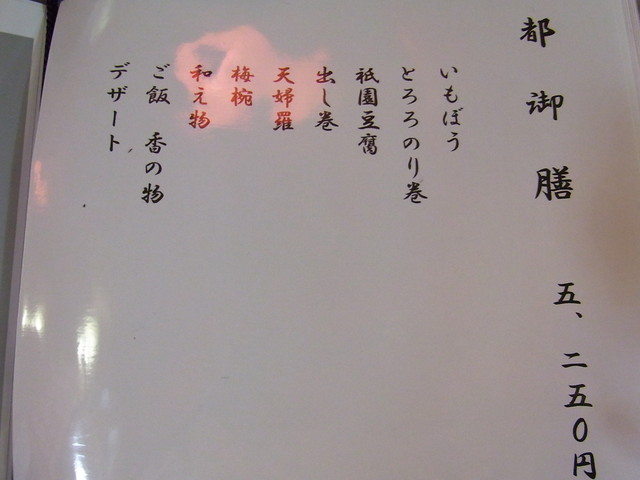 都御膳 五、二五〇円
いもぼう
とろろのり巻
祇園豆腐
出し巻
天婦羅
梅椀
和え物
ご飯 香の物
デザート